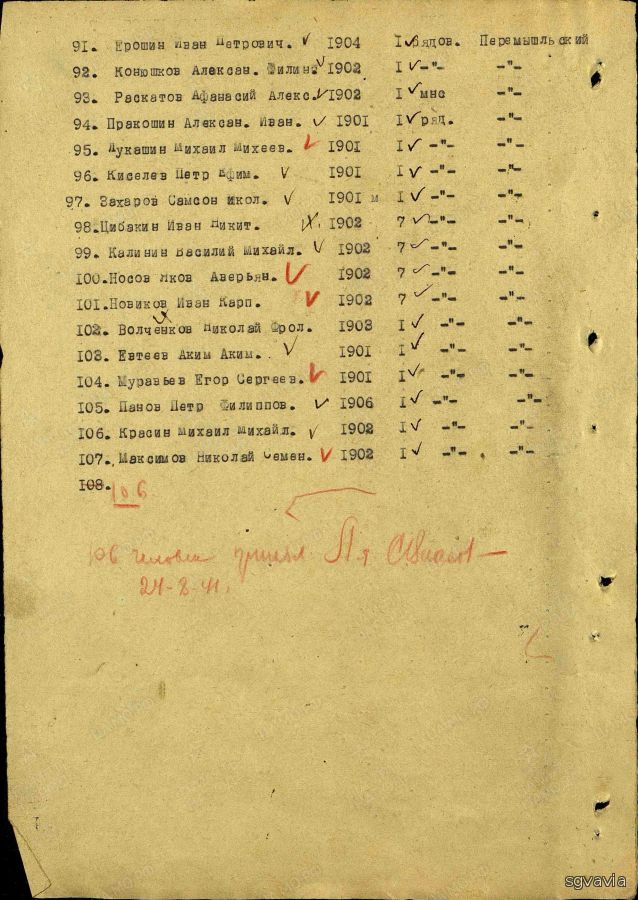 91. Ерошин Иван Петрович. ✓ 1904 I ✓ рядов. Перемышльский
92. Конюшков Алексан. Филип. ✓ 1902 I ✓ -"- -"-
93. Раскатов Афанасий Алекс. ✓ 1902 I ✓ мнс -"-
94. Пракошин Алексан. Иван. ✓ 1901 I ✓ ряд. -"-
95. Лукашин Михаил Михеев. ✓ 1901 I ✓ -"- -"-
96. Киселев Петр Ефим. ✓ 1901 I ✓ -"- -"-
97. Захаров Самсон Икол. ✓ 1901 м I ✓ -"- -"-
98. Цибакин Иван Никит. 1902 7 ✓ -"- -"-
99. Калинин Василий Михайл. ✓ 1902 7 ✓ -"- -"-
100. Носов Яков Аверьян. ✓ 1902 7 ✓ -"- -"-
101. Новиков Иван Карп. ✓ 1902 7 ✓ -"- -"-
102. Волченков Николай Фрол. 1903 I ✓ -"- -"-
103. Евтеев Аким Аким. ✓ 1901 I ✓ -"- -"-
104. Муравьев Егор Сергеев. ✓ 1901 I ✓ -"- -"-
105. Панов Петр Филиппов. ✓ 1906 I ✓ -"- -"-
106. Красин Михаил Михайл. ✓ 1902 I ✓ -"- -"-
107. Максимов Николай Семен. ✓ 1902 I ✓ -"- -"-
108. 106
106 человек принял
24-8-41.
sgvavia